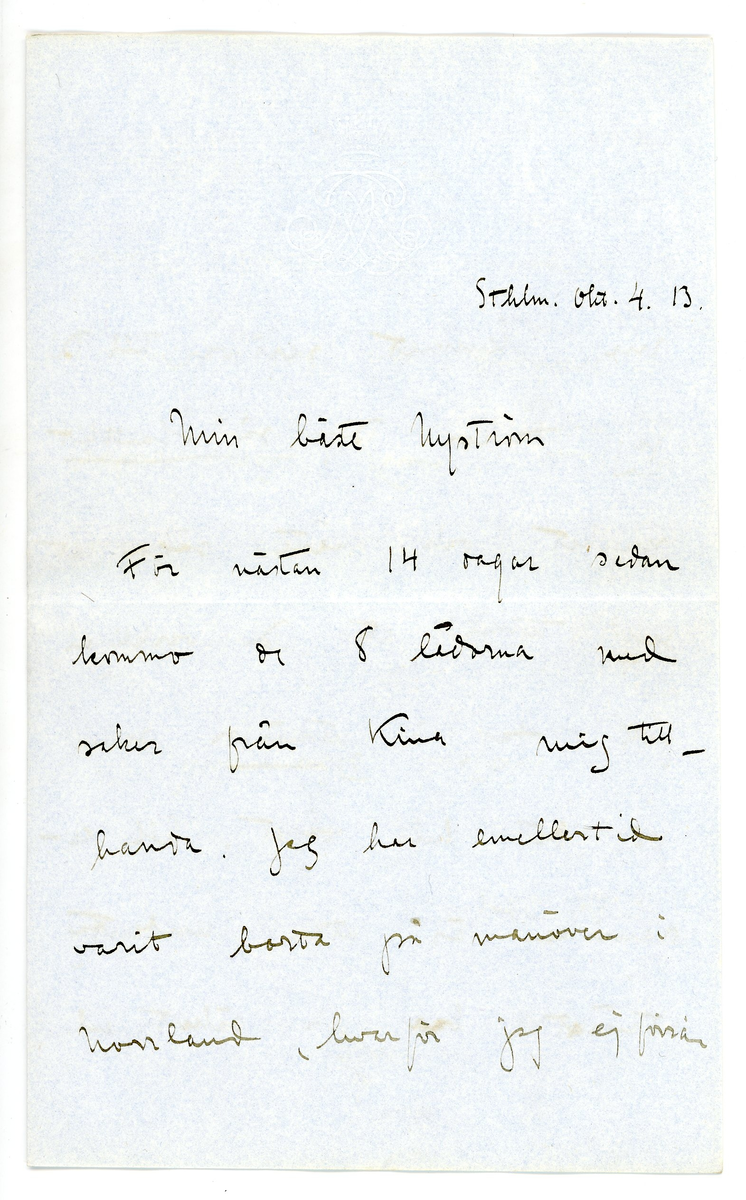 Sthlm. Okt. 4. 13.
Min bäste Nyström
För nästan 14 dagar sedan
kommo de 8 lådorna med
saker från Kina mig till-
handa. Jag har emellertid
varit borta på manöver i
Norrland, hvarför jag ej förrän